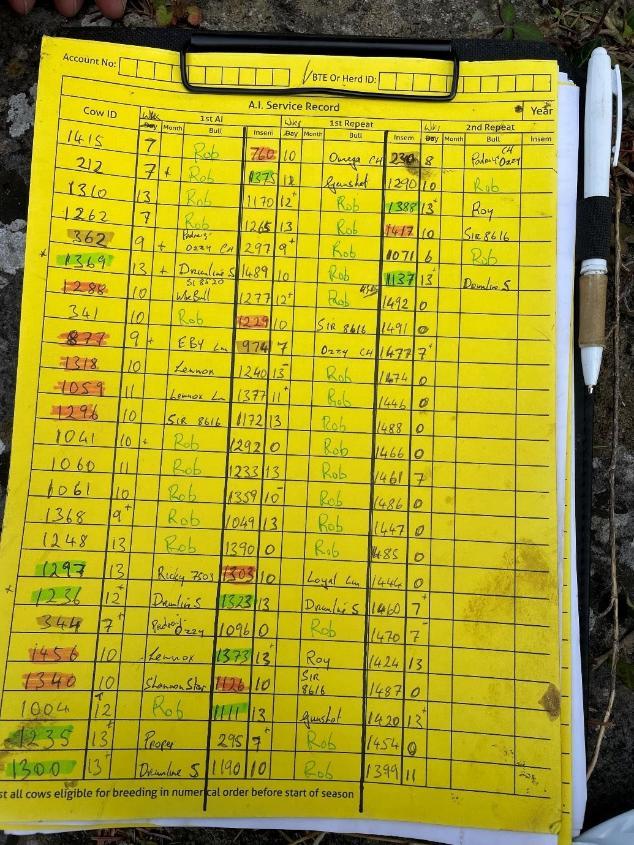 Account No: BTE Or Herd ID:
A.I. Service Record Year
Cow ID 1st AI 1st Repeat 2nd Repeat
Wks Day Month Bull Insem Wks Day Month Bull Insem Wks Day Month Bull Insem
1415 7 Rob 760 10 Omega CH 230 8 Padraig Ozzy CH
212 7+ Rob 1375 12 Gunshot 1290 10 Rob
1310 13 Rob 1170 12+ Rob 1388 13+ Roy
1262 7 Rob 1265 13 Rob 1417 10 SIR 8616
362 9+ Ozzy CH 297 9+ Rob 1071 6 Rob
1369 13+ Drumline S 1489 10 Rob 1137 13+ Drumline S
1288 10 1277 12+ Rob 1492 0
341 10 Rob 1229 10 SIR 8616 1491 0
877 9+ EBY Lm 974 7 Ozzy CH 1477 7+
1318 10 Lennox 1240 13- Rob 1474 0
1059 11 Lennox Lm 1377 11+ Rob 1446 0
1296 10 SIR 8616 1172 13 Rob 1488 0
1041 10+ Rob 1292 0 Rob 1466 0
1060 11 Rob 1233 13 Rob 1461 7
1061 10 Rob 1359 10- Rob 1486 0
1368 9+ Rob 1049 13 Rob 1447 0
1248 13 Rob 1390 0 Rob 1485 0
1297 13 Ricky 7501 1303 10 Loyal Lm 1444 0
1236 12+ Drumline S 1323 13 Drumline S 1460 7+
344 7+ Padraig Ozzy 1096 0 Rob 1470 7-
1456 10 Lennox 1373 13+ Roy 1424 13
1340 10 Shannon Star 1126 10 SIR 8616 1487 0
1004 12+ Rob 1111 13 Gunshot 1420 13+
1235 13+ Proper 295 7+ Rob 1454 0
1300 13+ Drumline S 1190 10 Rob 1399 11
st all cows eligible for breeding in numerical order before start of season